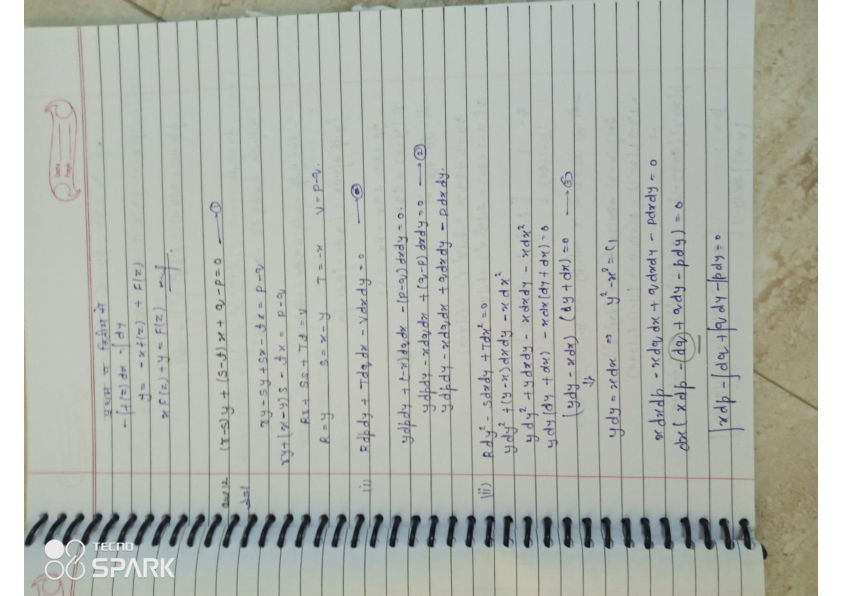 - ∫f(z) dx = ∫dy
y = -xf(z) + F(z)
xf(z) + y = F(z)
(r-s)y + (s-t)x + q-p=0 —①
ry - sy + sx - tx = p-q
ry + (x-y)s - tx = p-q
Rr + Ss + Tt = V
R = y S = x-y T = -x V = p-q.
(i) Rdpdy + Tdqdx - Vdxdy = 0
ydpdy + (-x)dqdx - (p-q)dxdy = 0.
ydpdy - xdqdx + (q-p)dxdy = 0 —②
ydpdy - xdqdx + qdxdy - pdxdy.
(ii) Rdy² - Sdxdy + Tdx² = 0
ydy² + (y-x)dxdy - xdx²
ydy² + ydxdy - xdxdy - xdx²
ydy(dy + dx) - xdx(dy + dx) = 0
(ydy - xdx) (dy + dx) = 0 —③
⇓
ydy = xdx ⇒ y² - x² = c₁
xdxdp - xdqdx + qdxdy - pdxdy = 0
dx(xdp - (dq + qdy - pdy) = 0
∫xdp - ∫dq + ∫qdy - ∫pdy = 0
TECNO
SPARK